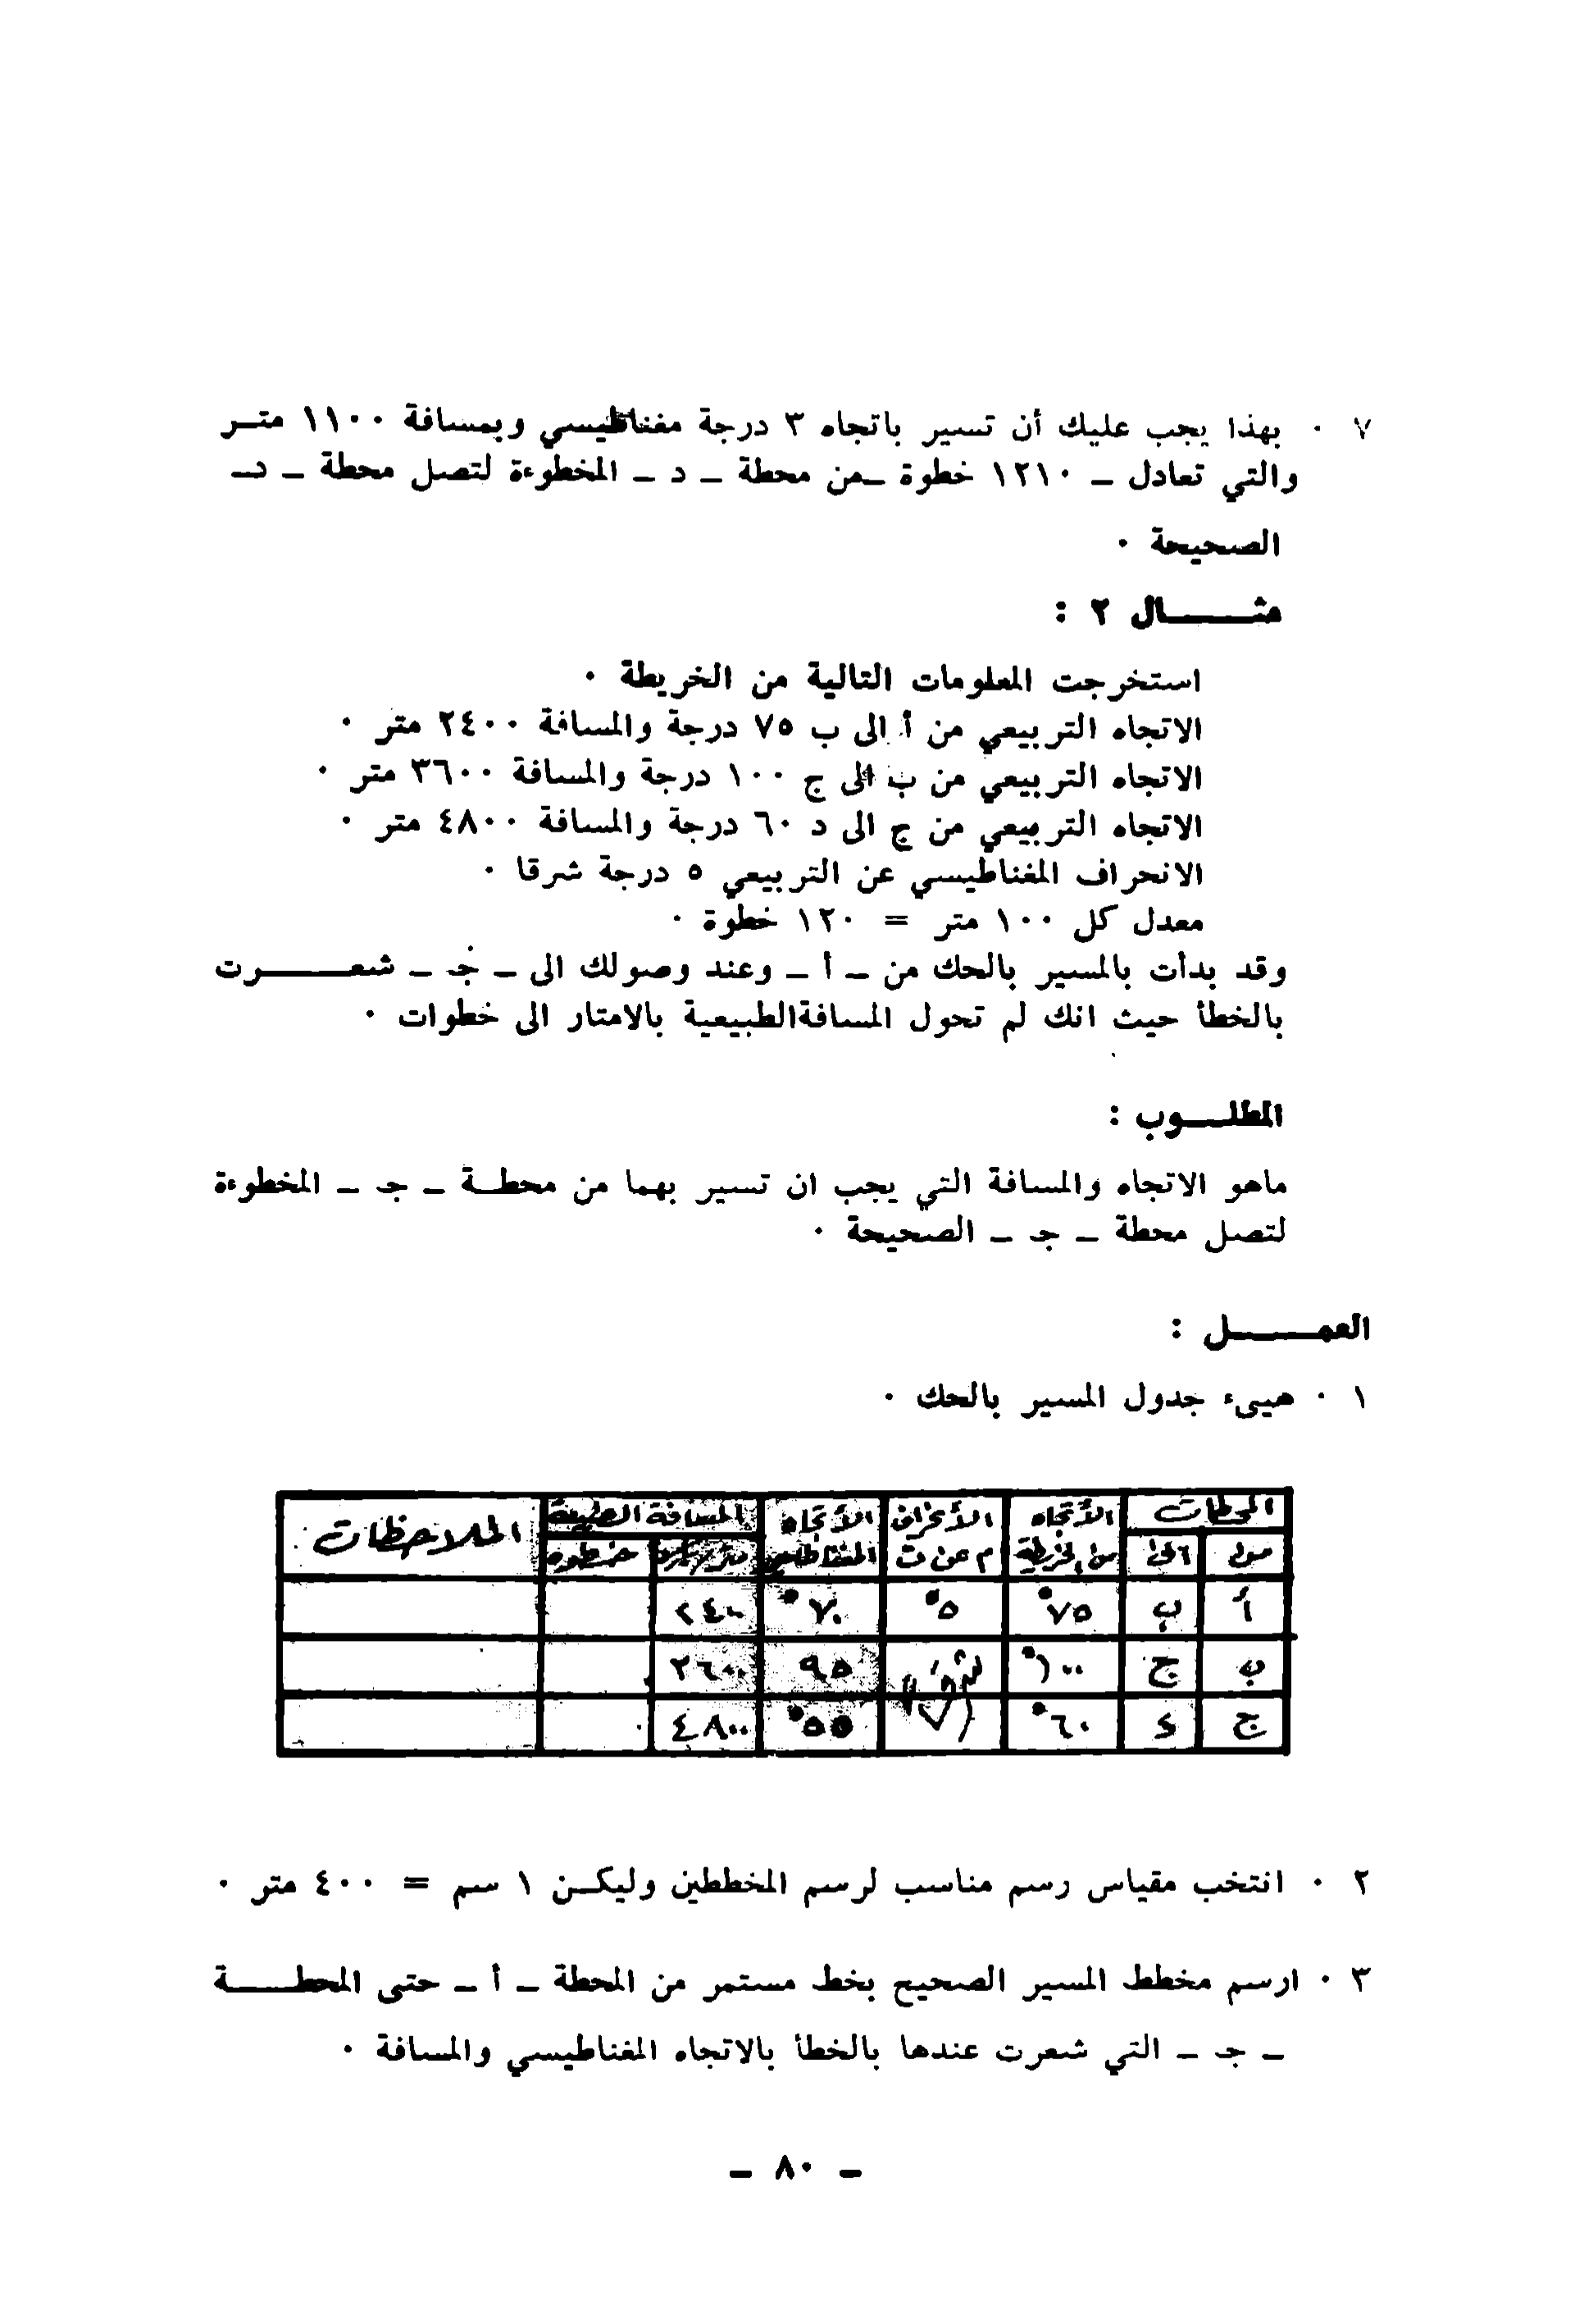 ٧ ٠ بهذا يجب عليك أن تسير باتجاه ٣ درجة مغناطيسي وبمسافة ١١٠٠ متـر
والتي تعادل ـ ١٢١٠ خطوة ـمن محطة ـ د ـ المخطوءة لتصل محطة ـ دـ
الصحيحة ٠
مثـــــال ٢ :
استخرجت المعلومات التالية من الخريطة ٠
الاتجاه التربيعي من أ الى ب ٧٥ درجة والمسافة ٢٤٠٠ متر ٠
الاتجاه التربيعي من ب الى ج ١٠٠ درجة والمسافة ٣٦٠٠ متر ٠
الاتجاه التربيعي من ج الى د ٦٠ درجة والمسافة ٤٨٠٠ متر ٠
الانحراف المغناطيسي عن التربيعي ٥ درجة شرقا ٠
معدل كل ١٠٠ متر = ١٢٠ خطوة ٠
وقد بدأت بالمسير بالحك من ـ أ ـ وعند وصولك الى ـ جـ ـ شعـــــرت
بالخطأ حيث انك لم تحول المسافةالطبيعية بالامتار الى خطوات ٠
المطلـــوب :
ماهو الاتجاه والمسافة التي يجب ان تسير بهما من محطــة ـ جـ ـ المخطوءة
لتصل محطة ـ جـ ـ الصحيحة ٠
العمـــــل :
١ ٠ هيىء جدول المسير بالحك ٠
المحطات الأتجاه الأنحراف الأتجاه المسافة الطبيعية الملاحظات
من الى من الخريطة م عن ت المغناطيسي خطوة
أ ب ٧٥° ٥° ٧٠° ٢٤٠٠
ب ج ١٠٠° شرقاً ٩٥ ٣٦٠٠
ج د ٦٠° ٥٥° ٤٨٠٠
٢ ٠ انتخب مقياس رسم مناسب لرسم المخططين وليكـن ١ سم = ٤٠٠ متر ٠
٣ ٠ ارسم مخطط المسير الصحيح بخط مستمر من المحطة ـ أ ـ حتى المحطـــة
ـ جـ ـ التي شعرت عندها بالخطأ بالاتجاه المغناطيسي والمسافة ٠
ـ ٨٠ ـ